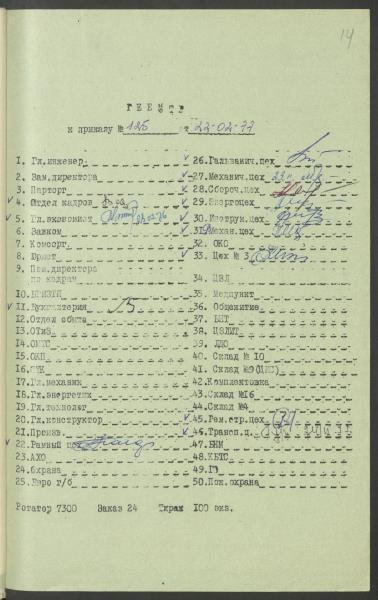 14
РЕЕСТР
к приказу № 125 от 22-02-77
1. Гл.инженер
2. Зам.директора
3. Парторг
4. Отдел кадров
5. Гл.экономист
6. Завком
7. Комсорг
8. Юрист
9. Пом.директора
по кадрам
10.
11. Бухгалтерия
12.Отдел сбыта
13.ОТиЗ
14.ОМТС
15.ОКП
16.
17.Гл.механик
18.Гл.энергетик
19.Гл.технолог
20.Гл.конструктор
21.Произв.
22.Рамный ц
23.АХО
24.Охрана
25.Бюро г/б
26.Гальванич.цех
27.Механич.цех
28.Сбороч.цех
29.Энергоцех
30.Инструм.цех
31.Механ.цех
32. ОКС
33. Цех № 3
34. ЦЗЛ
35. Медпункт
36. Общежитие
37.
38.
39.
40. Склад № 10
41. Склад №9
42.Комплектовка
43.Склад №16
44.Склад №4
45.Рем.стр.цех
46.Трансп.ц.
47.БНМ
48.КБТС
49.
50.Пож.охрана
Ротатор 7300 Заказ 24 Тираж 100 экз.